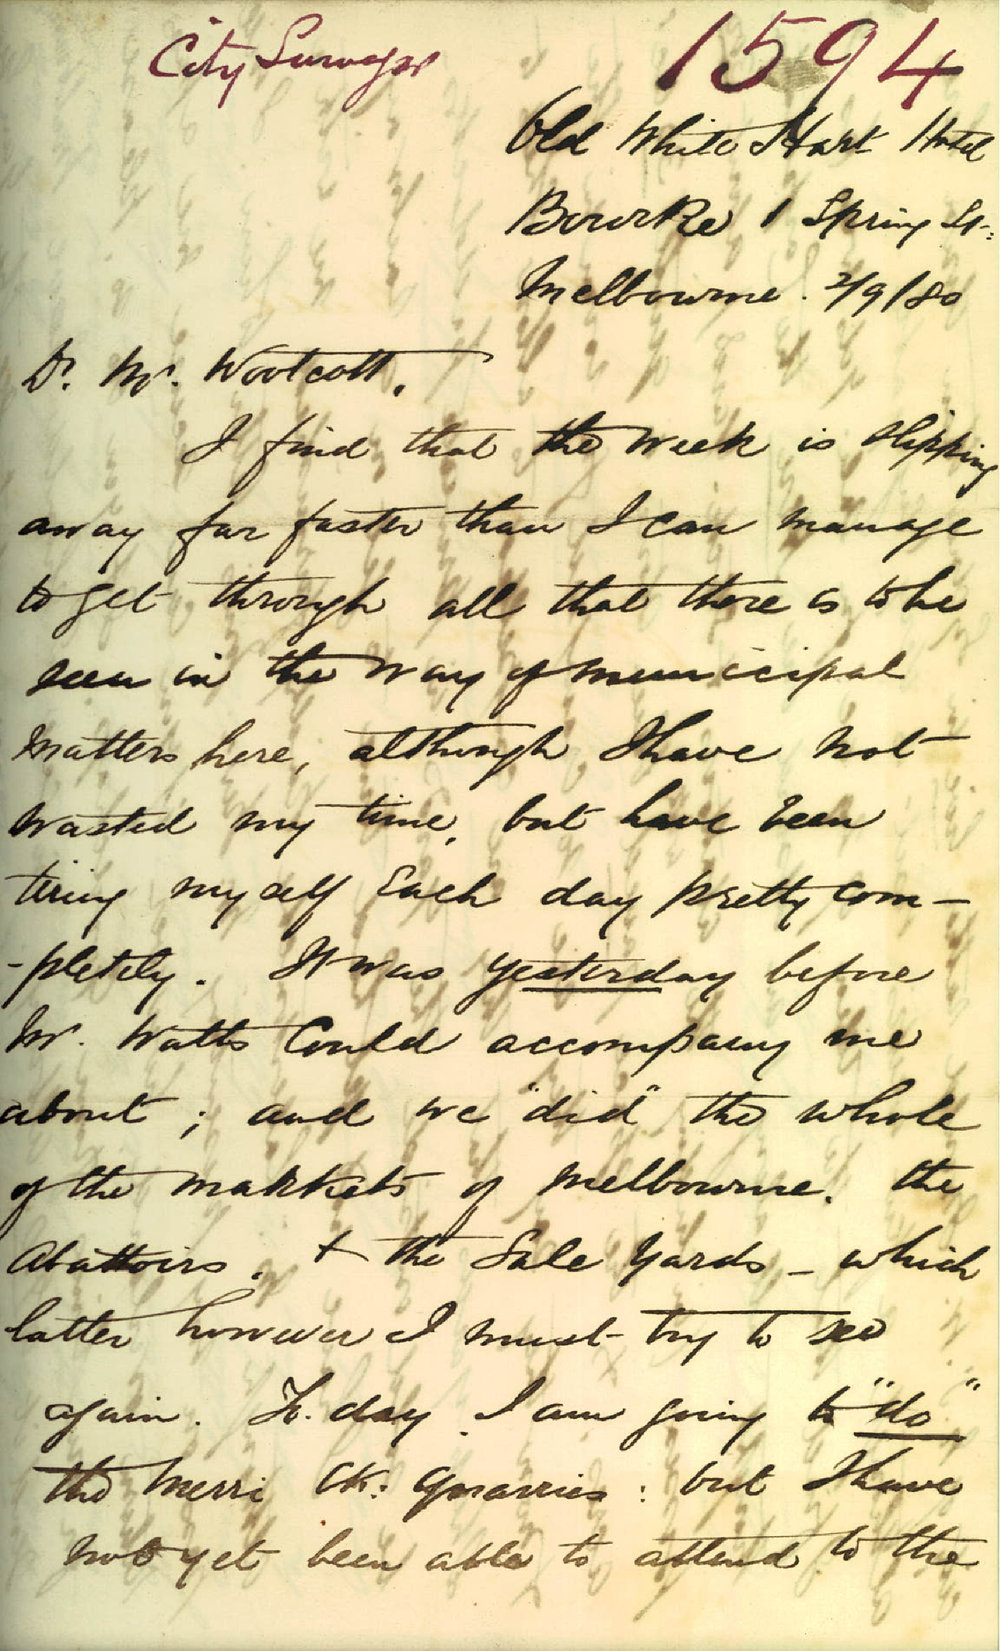 City Surveyor
1594
Old White Hart Hotel
Bourke & Spring St:
Melbourne. 2/9/80
Dr. Mr. Wootcott.
I find that the week is slipping
away far faster than I can manage
to get through all that there is to be
seen in the way of municipal
matters here, although I have not
wasted my time, but have been
tiring myself each day pretty com-
-pletely. It was yesterday before
Mr. Watts could accompany me
about; and we "did" the whole
of the markets of Melbourne. the
Abattoirs. + the Sale Yards - which
latter however I must try to see
again. To.day I am going to "do"
the Merri Ck: Quarries: but I have
not yet been able to attend to the